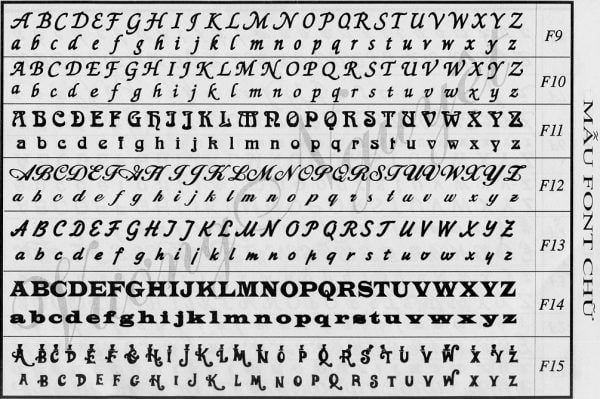 ABCDEFGHIJKLMNOPQRSTUVWXYZ
a b c d e f g h i j k l m n o p q r s t u v w x y z F9
ABCDEFGHIJKLMNOPQRSTUVWXYZ
a b c d e f g h i j k l m n o p q r s t u v w x y z F10
ABCDEFGHIJKLMNOPQRSTUVWXYZ
a b c d e f g h i j k l m n o p q r s t u v w x y z F11
ABCDEFGHIJKLMNOPQRSTUVWXYZ
a b c d e f g h i j k l m n o p q r s t u v w x y z F12
ABCDEFGHIJKLMNOPQRSTUVWXYZ
a b c d e f g h i j k l m n o p q r s t u v w x y z F13
ABCDEFGHIJKLMNOPQRSTUVWXYZ
a b c d e f g h i j k l m n o p q r s t u v w x y z F14
A B C D E F G H I J K L M N O P Q R S T U V W X Y Z
A B C D E F G H I J K L M N O P Q R S T U V W X Y Z F15
MẪU FONT CHỮ
Vương Nguyệt